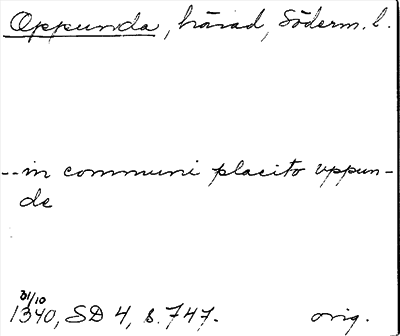 Oppunda, härad, Söderm. l.
-- in communi placito vppun-
de
31/10
1340, SD 4, s. 747. orig.